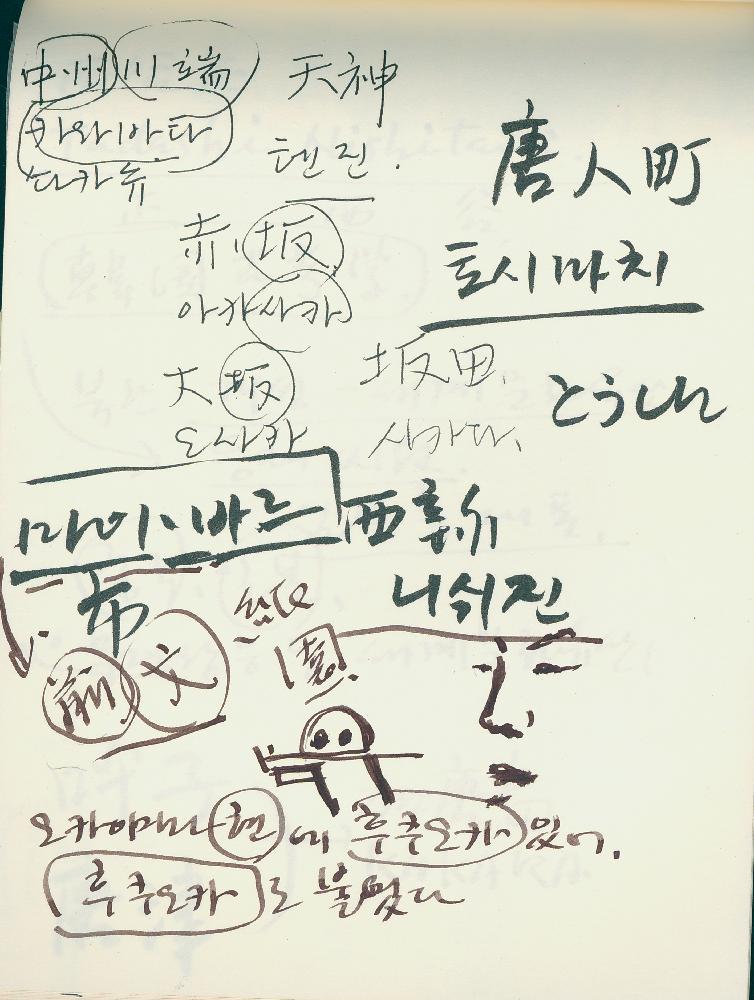 中州川端
카와바타
天神
텐진.
赤坂
아카사카
大坂
오사카
坂田.
사카다.
唐人町
토시마치
とうじん
마이·바르
西新
니쉬진
布
前文
園
오카야마라현에 후쿠오카 있어.
후쿠오카로 불렀다